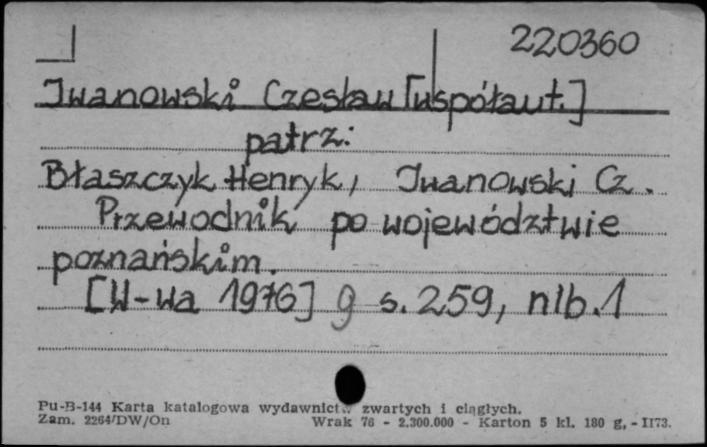 220360
Iwanowski Czesław [współaut.]
patrz:
Błaszczyk Henryk, Iwanowski Cz.
Przewodnik po województwie
poznańskim.
[W-wa 1976] 9 s. 259, nlb. 1
Pu-B-144 Karta katalogowa wydawnictw zwartych i ciągłych.
Zam. 2264/DW/On Wrak 76 - 2.300.000 - Karton 5 kl. 180 g, - II73.